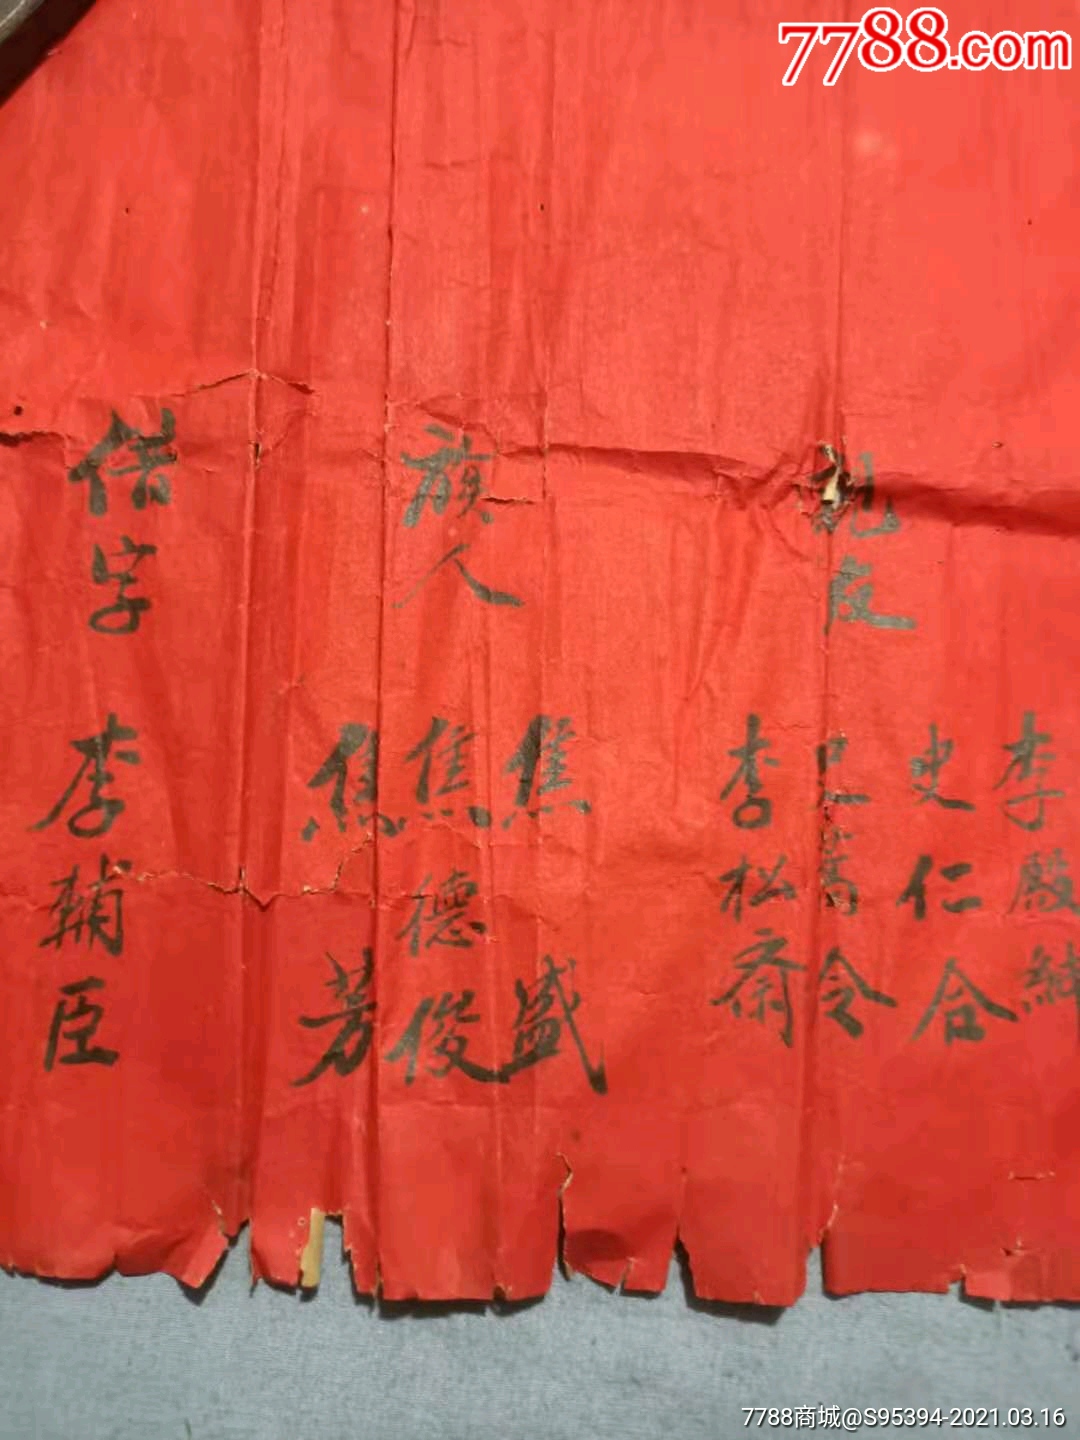 7788.com
親友
李殿
史仁合
史 令
李松斋
族人
焦盛
焦德俊
焦芳
借字
李輔臣
7788商城@S95394-2021.03.16